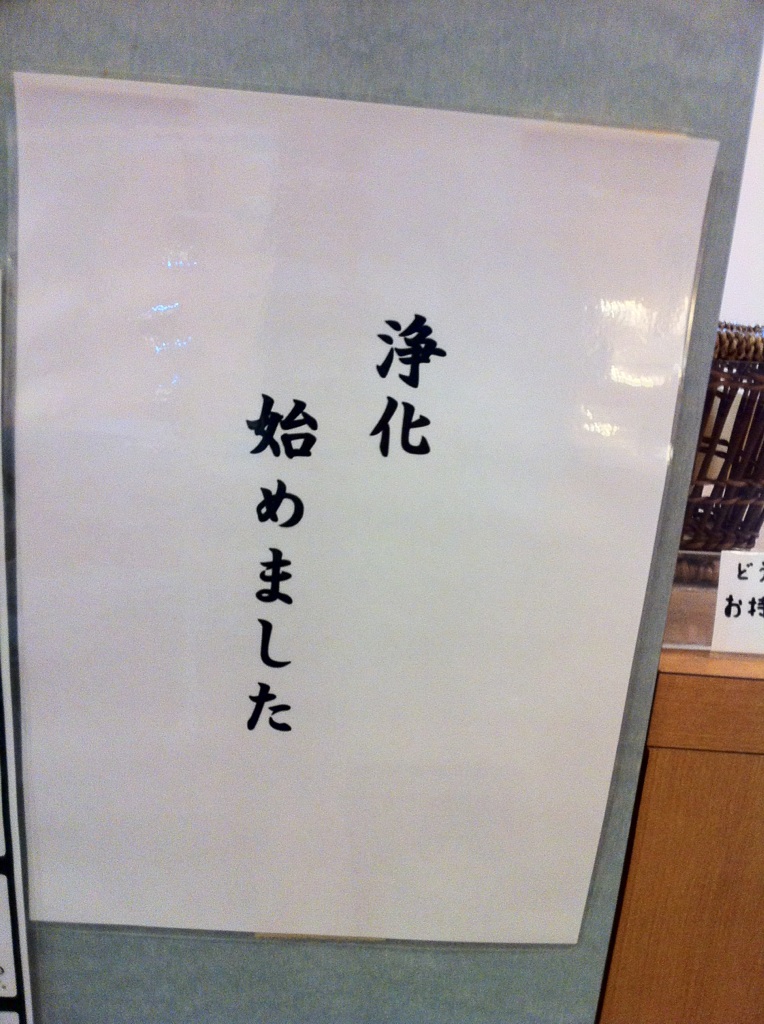 浄化
始めました
お持